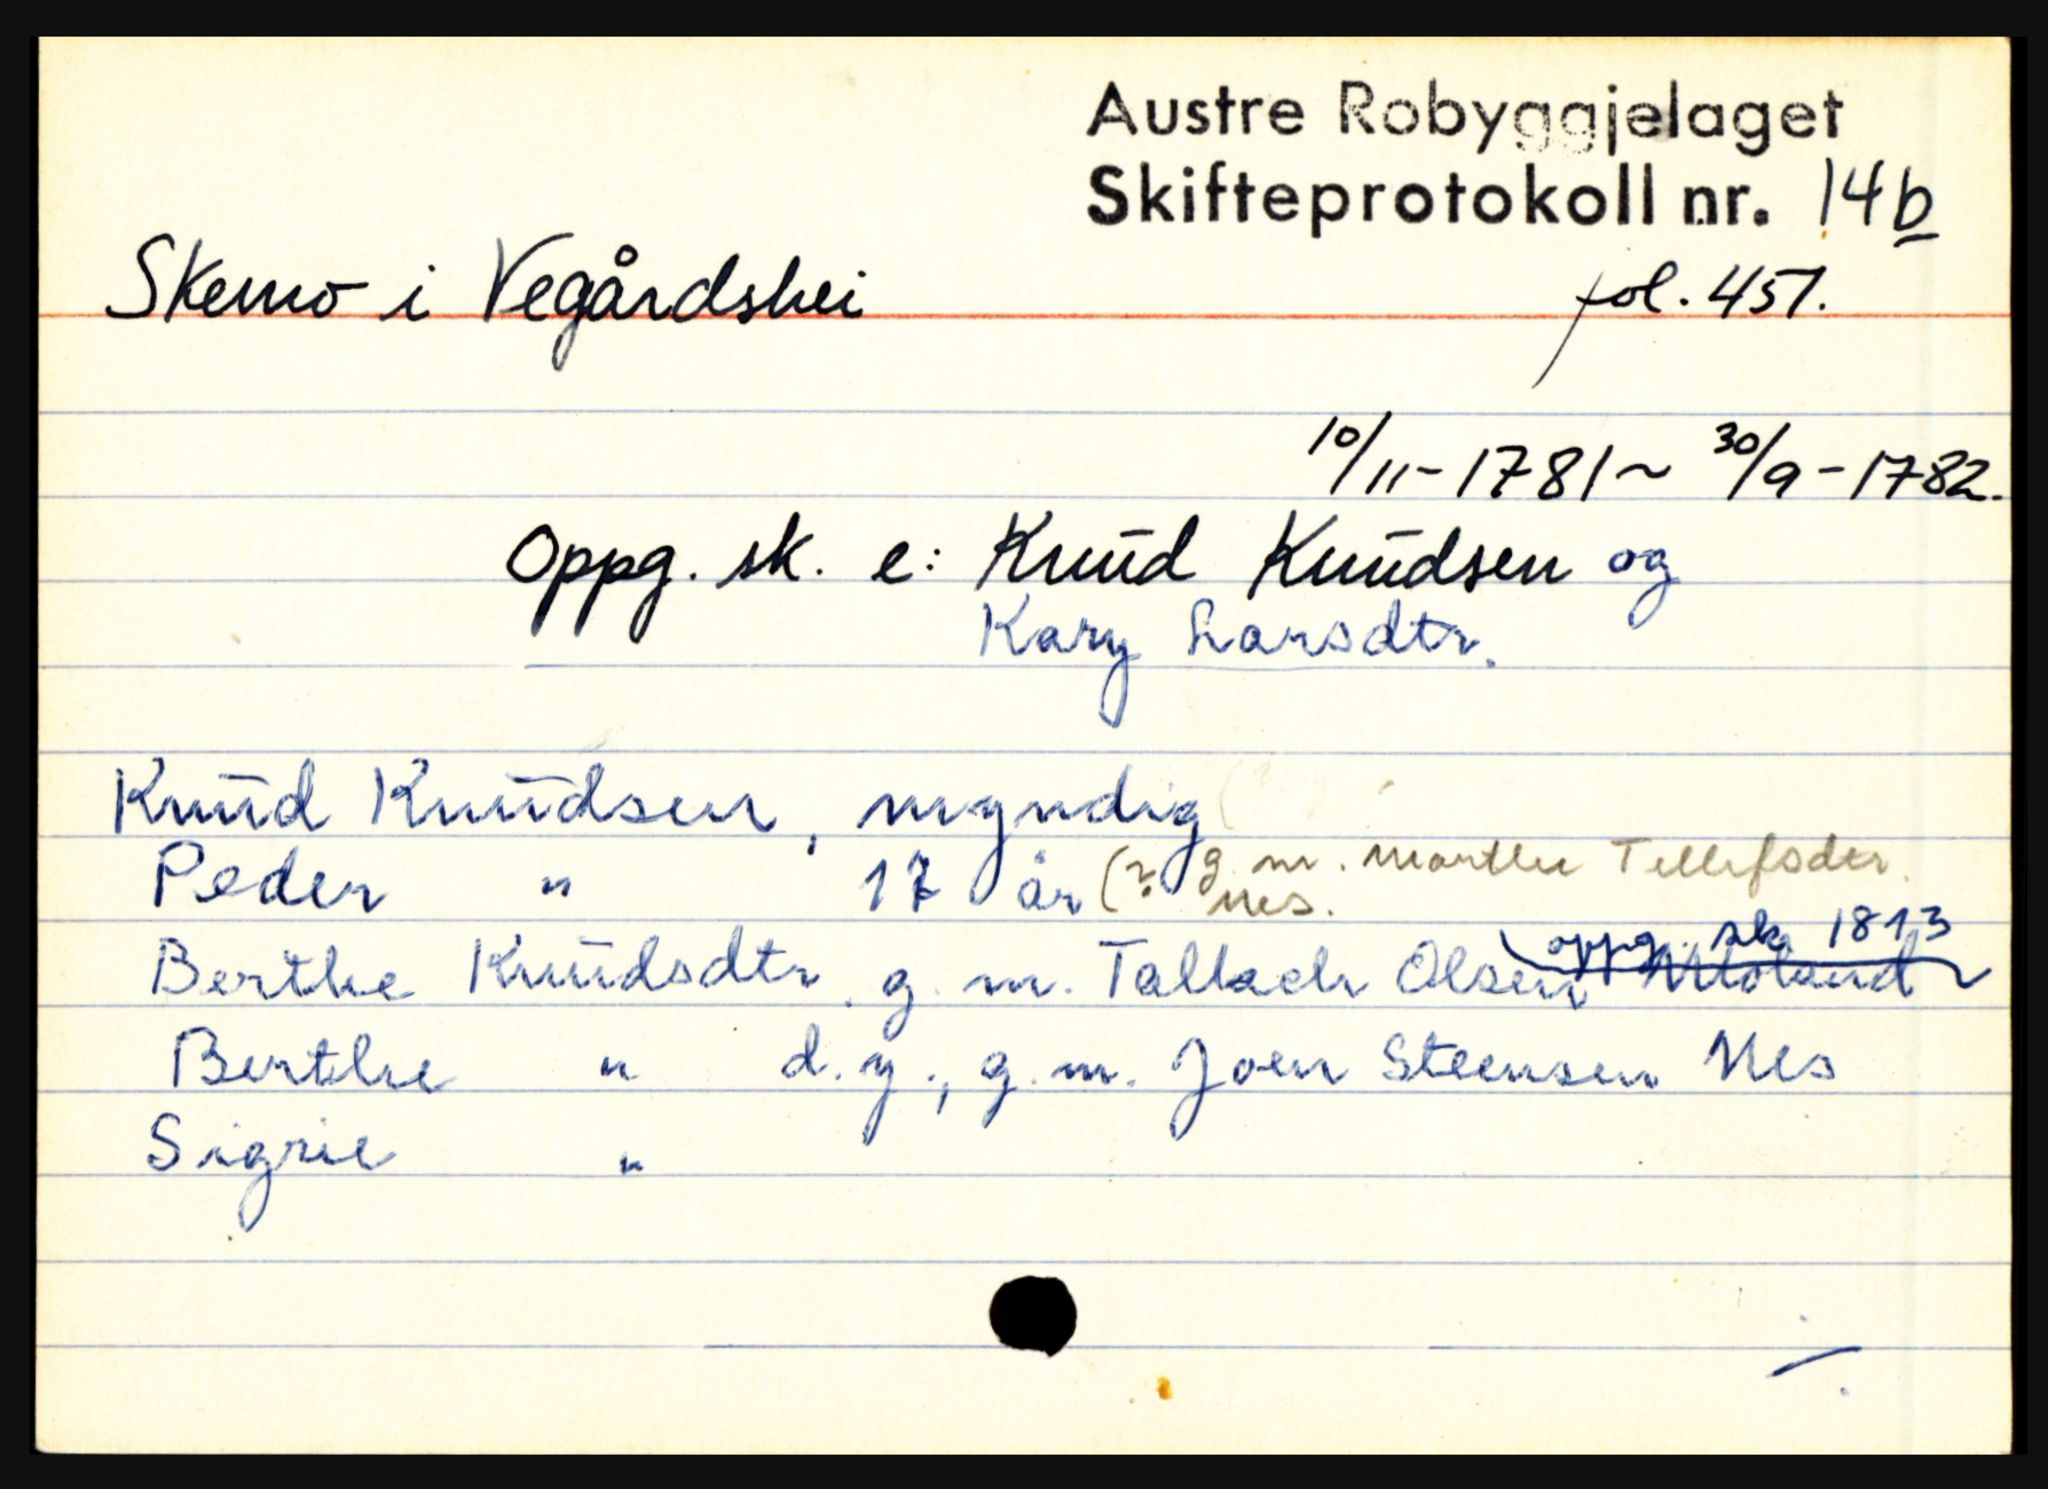 Austre Robyggjelaget
Skifteprotokoll nr. 14b
Skemo i Vegårdshei fol. 451.
10/11-1781 ~ 30/9-1782.
Oppg. sk. e: Knud Knudsen og
Kary Larsdtr.
Knud Knudsen, myndig
Peder " 17 år (? g. m. Marthe Tellefsdtr.
Nes.
oppg. sk 1813
Berthe Knudsdtr. g. m. Tallach Olsen Moland
Berthe " d. y., g. m. Joen Steensen Nes
Sigrie "